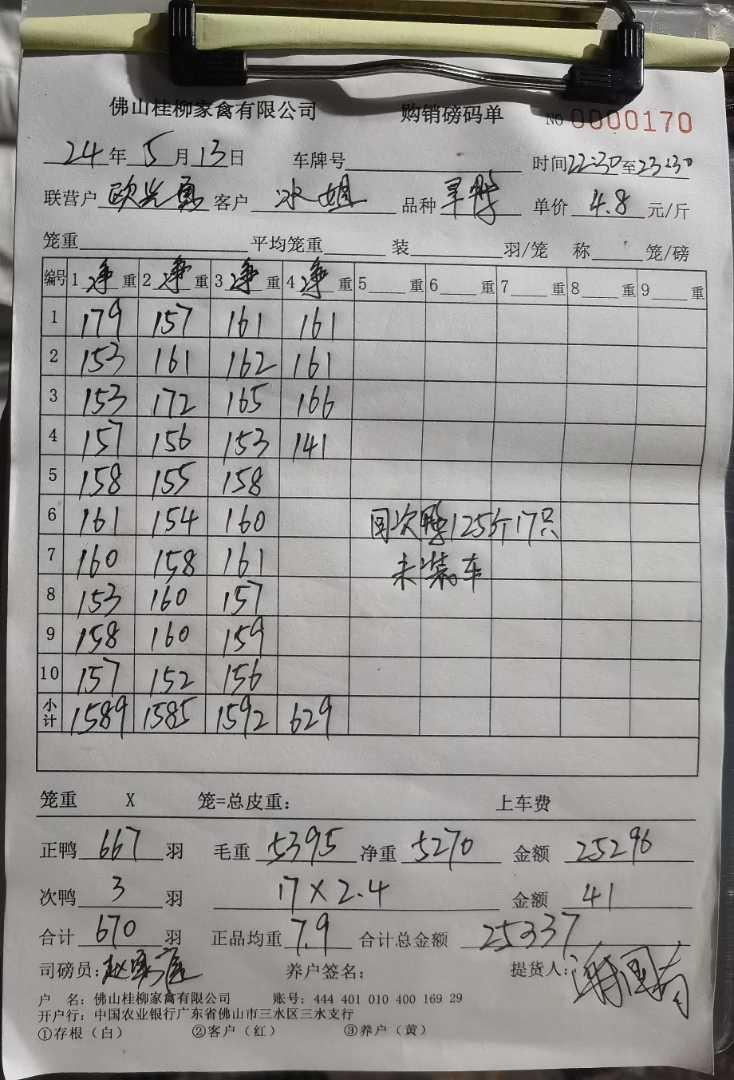 佛山桂柳家禽有限公司 购销磅码单 NO 0000170
24年5月13日 车牌号 时间22:30至23:30
联营户 欧 客户 冰姐 品种 单价 4.8 元/斤
笼重 平均笼重 装 羽/笼 称 笼/磅
编号 1 净重 2 净重 3 净重 4 净重 5 重 6 重 7 重 8 重 9 重
1 179 157 161 161
2 153 161 162 161
3 153 172 165 166
4 157 156 153 141
5 158 155 158
6 161 154 160 次鸭125斤17只
7 160 158 161 未装车
8 153 160 157
9 158 160 159
10 157 152 156
小计 1589 1585 1592 629
笼重 X 笼=总皮重: 上车费
正鸭 667 羽 毛重 5395 净重 5270 金额 25296
次鸭 3 羽 17×2.4 金额 41
合计 670 羽 正品均重 7.9 合计总金额 25337
司磅员: 赵 养户签名: 提货人:
户 名: 佛山桂柳家禽有限公司 账号: 444 401 010 400 169 29
开户行: 中国农业银行广东省佛山市三水区三水支行
①存根(白) ②客户(红) ③养户(黄)